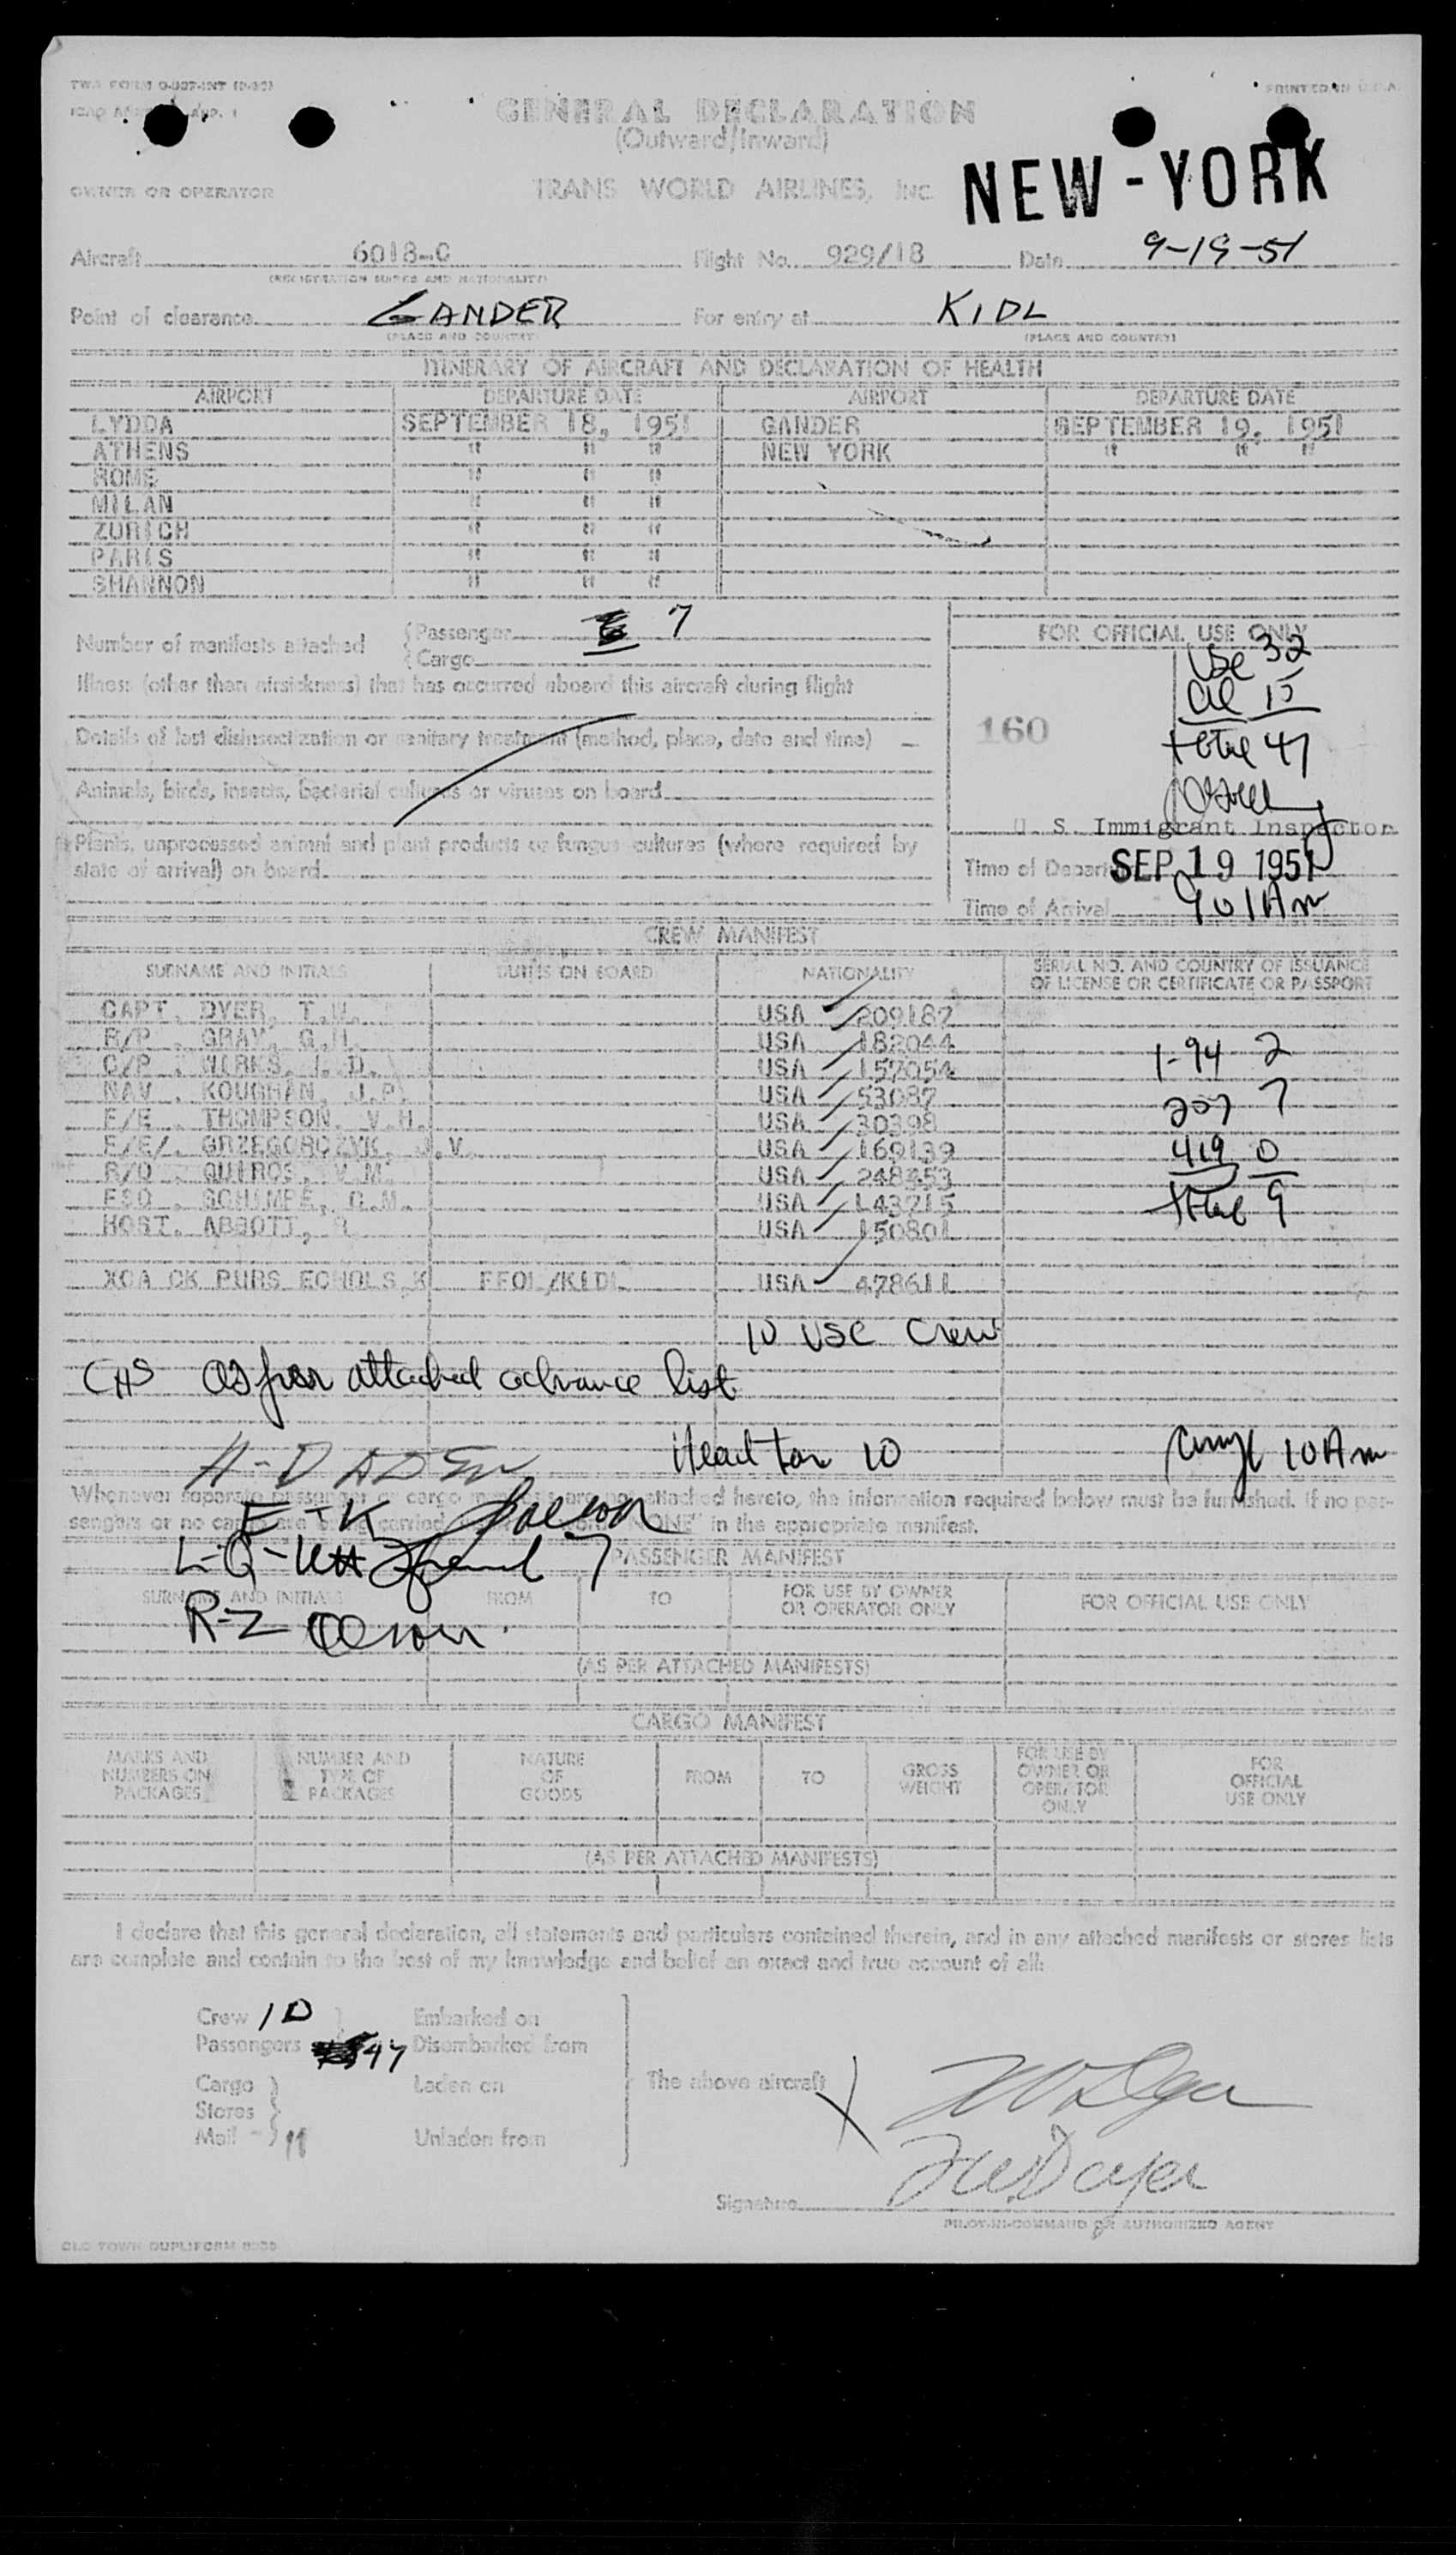 TWA FORM O-307-INT
PRINTED IN U.S.A.
GENERAL DECLARATION
(Outward/Inward)
OWNER OR OPERATOR TRANS WORLD AIRLINES, INC.
NEW-YORK
Aircraft 6018-C Flight No. 929/18 Date 9-19-51
(REGISTRATION MARKS AND NATIONALITY)
Point of clearance GANDER For entry at KIDL
(PLACE AND COUNTRY) (PLACE AND COUNTRY)
ITINERARY OF AIRCRAFT AND DECLARATION OF HEALTH
AIRPORT DEPARTURE DATE AIRPORT DEPARTURE DATE
LYDDA SEPTEMBER 18, 1951 GANDER SEPTEMBER 19, 1951
ATHENS " " " NEW YORK " " "
ROME " " "
MILAN " " "
ZURICH " " "
PARIS " " "
SHANNON " " "
Number of manifests attached
Passenger 7
Cargo
Illness (other than airsickness) that has occurred aboard this aircraft during flight
Details of last disinsectization or sanitary treatment (method, place, date and time)
Animals, birds, insects, bacterial cultures or viruses on board
Plants, unprocessed animal and plant products or fungus cultures (where required by
state of arrival) on board
FOR OFFICIAL USE ONLY
USC 32
al 15
160
total 47
U. S. Immigrant Inspector
Time of Departure SEP 19 1951
Time of Arrival 901 Am
CREW MANIFEST
SURNAME AND INITIALS DUTIES ON BOARD NATIONALITY SERIAL NO. AND COUNTRY OF ISSUANCE
OF LICENSE OR CERTIFICATE OR PASSPORT
CAPT. DYER, T.W. USA 209187
R/P . GRAY, G.H. USA 182044
C/P . I. D. USA 157054
NAV . KOUGHAN, J.P. USA 53087
F/E . THOMPSON, V.H. USA 30398
F/E/. GRZEGORCZYK, J.V. USA 169139
R/O . QUIROS, V.M. USA 248453
ESO . SCHIMPF, C.M. USA 143715
HOST. ABBOTT, USA 150801
1-94 2
207 7
419 0
total 9
XOA CK PURS ECHOLS K EFOL/KIDL USA 478611
10 USC Crew
CHS as per attached advance list
A-D ADEN Head tax 10 10 Am
Whenever separate passenger or cargo manifests are not attached hereto, the information required below must be furnished. If no pas-
sengers or no cargo are being carried "NONE" in the appropriate manifest.
E-K
L-Q 7
PASSENGER MANIFEST
SURNAME AND INITIALS FROM TO FOR USE BY OWNER
OR OPERATOR ONLY FOR OFFICIAL USE ONLY
R-Z
(AS PER ATTACHED MANIFESTS)
CARGO MANIFEST
MARKS AND
NUMBERS ON
PACKAGES
NUMBER AND
TYPE OF
PACKAGES
NATURE
OF
GOODS
FROM
TO
GROSS
WEIGHT
FOR USE BY
OWNER OR
OPERATOR
ONLY
FOR
OFFICIAL
USE ONLY
(AS PER ATTACHED MANIFESTS)
I declare that this general declaration, all statements and particulars contained therein, and in any attached manifests or stores lists
are complete and contain to the best of my knowledge and belief an exact and true account of all:
Crew 10 Embarked on
Passengers 47 Disembarked from
Cargo Laden on
Stores
Mail Unladen from
The above aircraft
X TWDyer
TWDyer
Signature
PILOT-IN-COMMAND OR AUTHORIZED AGENT
OLD TOWN DUPLIFORM